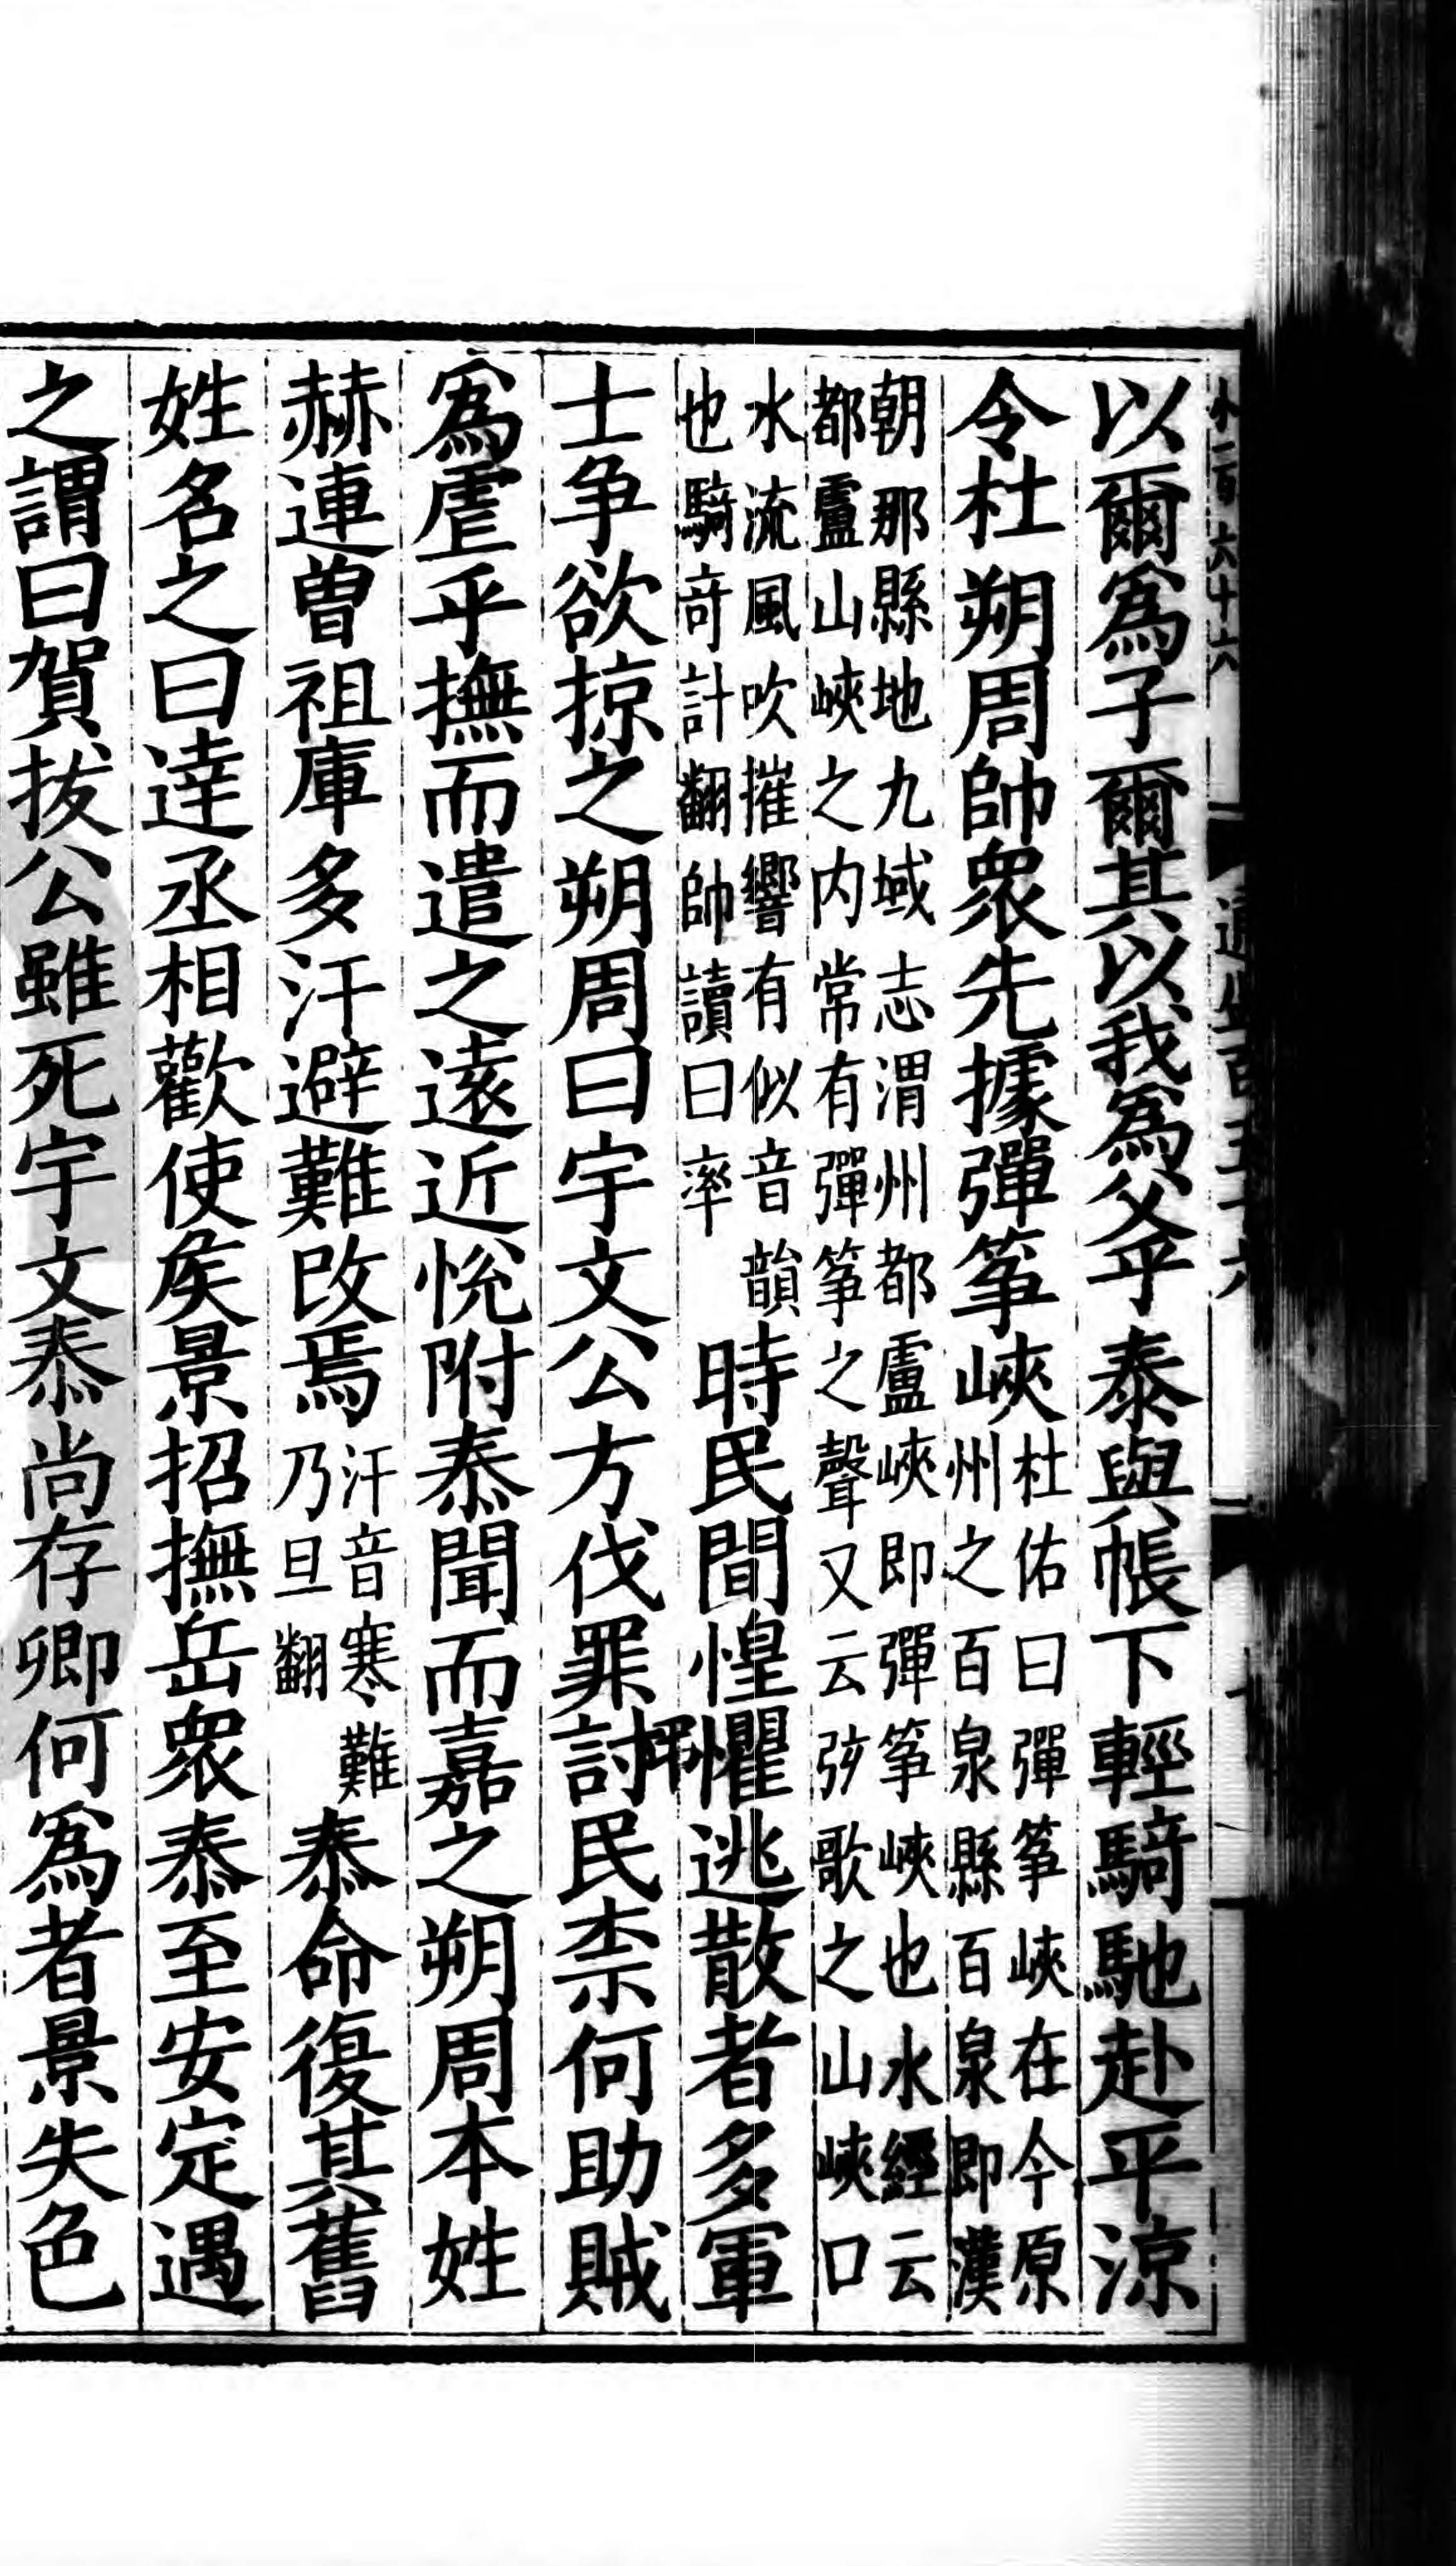 小二百六十六
以爾爲子爾其以我爲父乎泰與帳下輕騎馳赴平涼
令杜朔周帥衆先據彈筝峽杜佑曰彈筝峽在今原
州之百泉縣百泉即漢
朝那縣地九域志渭州都盧峽即彈筝峽也水經云
都盧山峽之内常有彈筝之聲又云弦歌之山峽口
水流風吹摧響有似音韻
也騎奇計翻帥讀曰率
時民間惶懼逃散者多軍
士争欲掠之朔周曰宇文公方伐罪弔民柰何助賊
爲虐乎撫而遣之遠近悅附泰聞而嘉之朔周本姓
赫連曾祖庫多汗避難改焉汗音寒難
乃旦翻
泰命復其舊
姓名之曰達丞相歡使矦景招撫岳衆泰至安定遇
之謂曰賀拔公雖死宇文泰尚存卿何爲者景失色